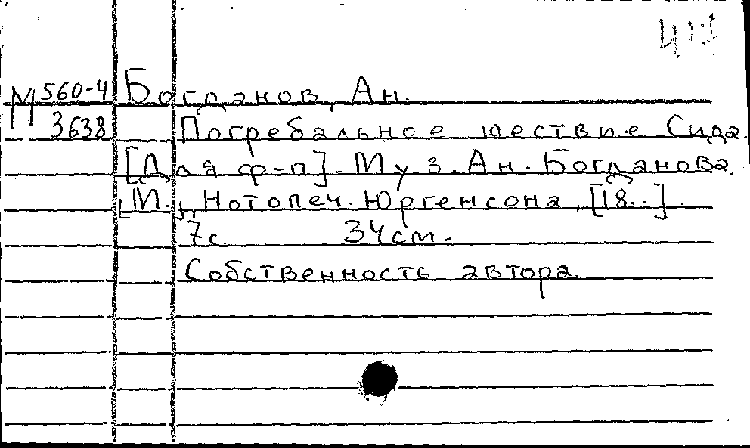 М 560-4 Богданов, Ан.
3638 Погребальное шествие Сида
[Для ф-п]. Муз. Ан. Богданова.
М., Нотопеч. Юргенсона, [18..].
7с 34см.
Собственность автора.